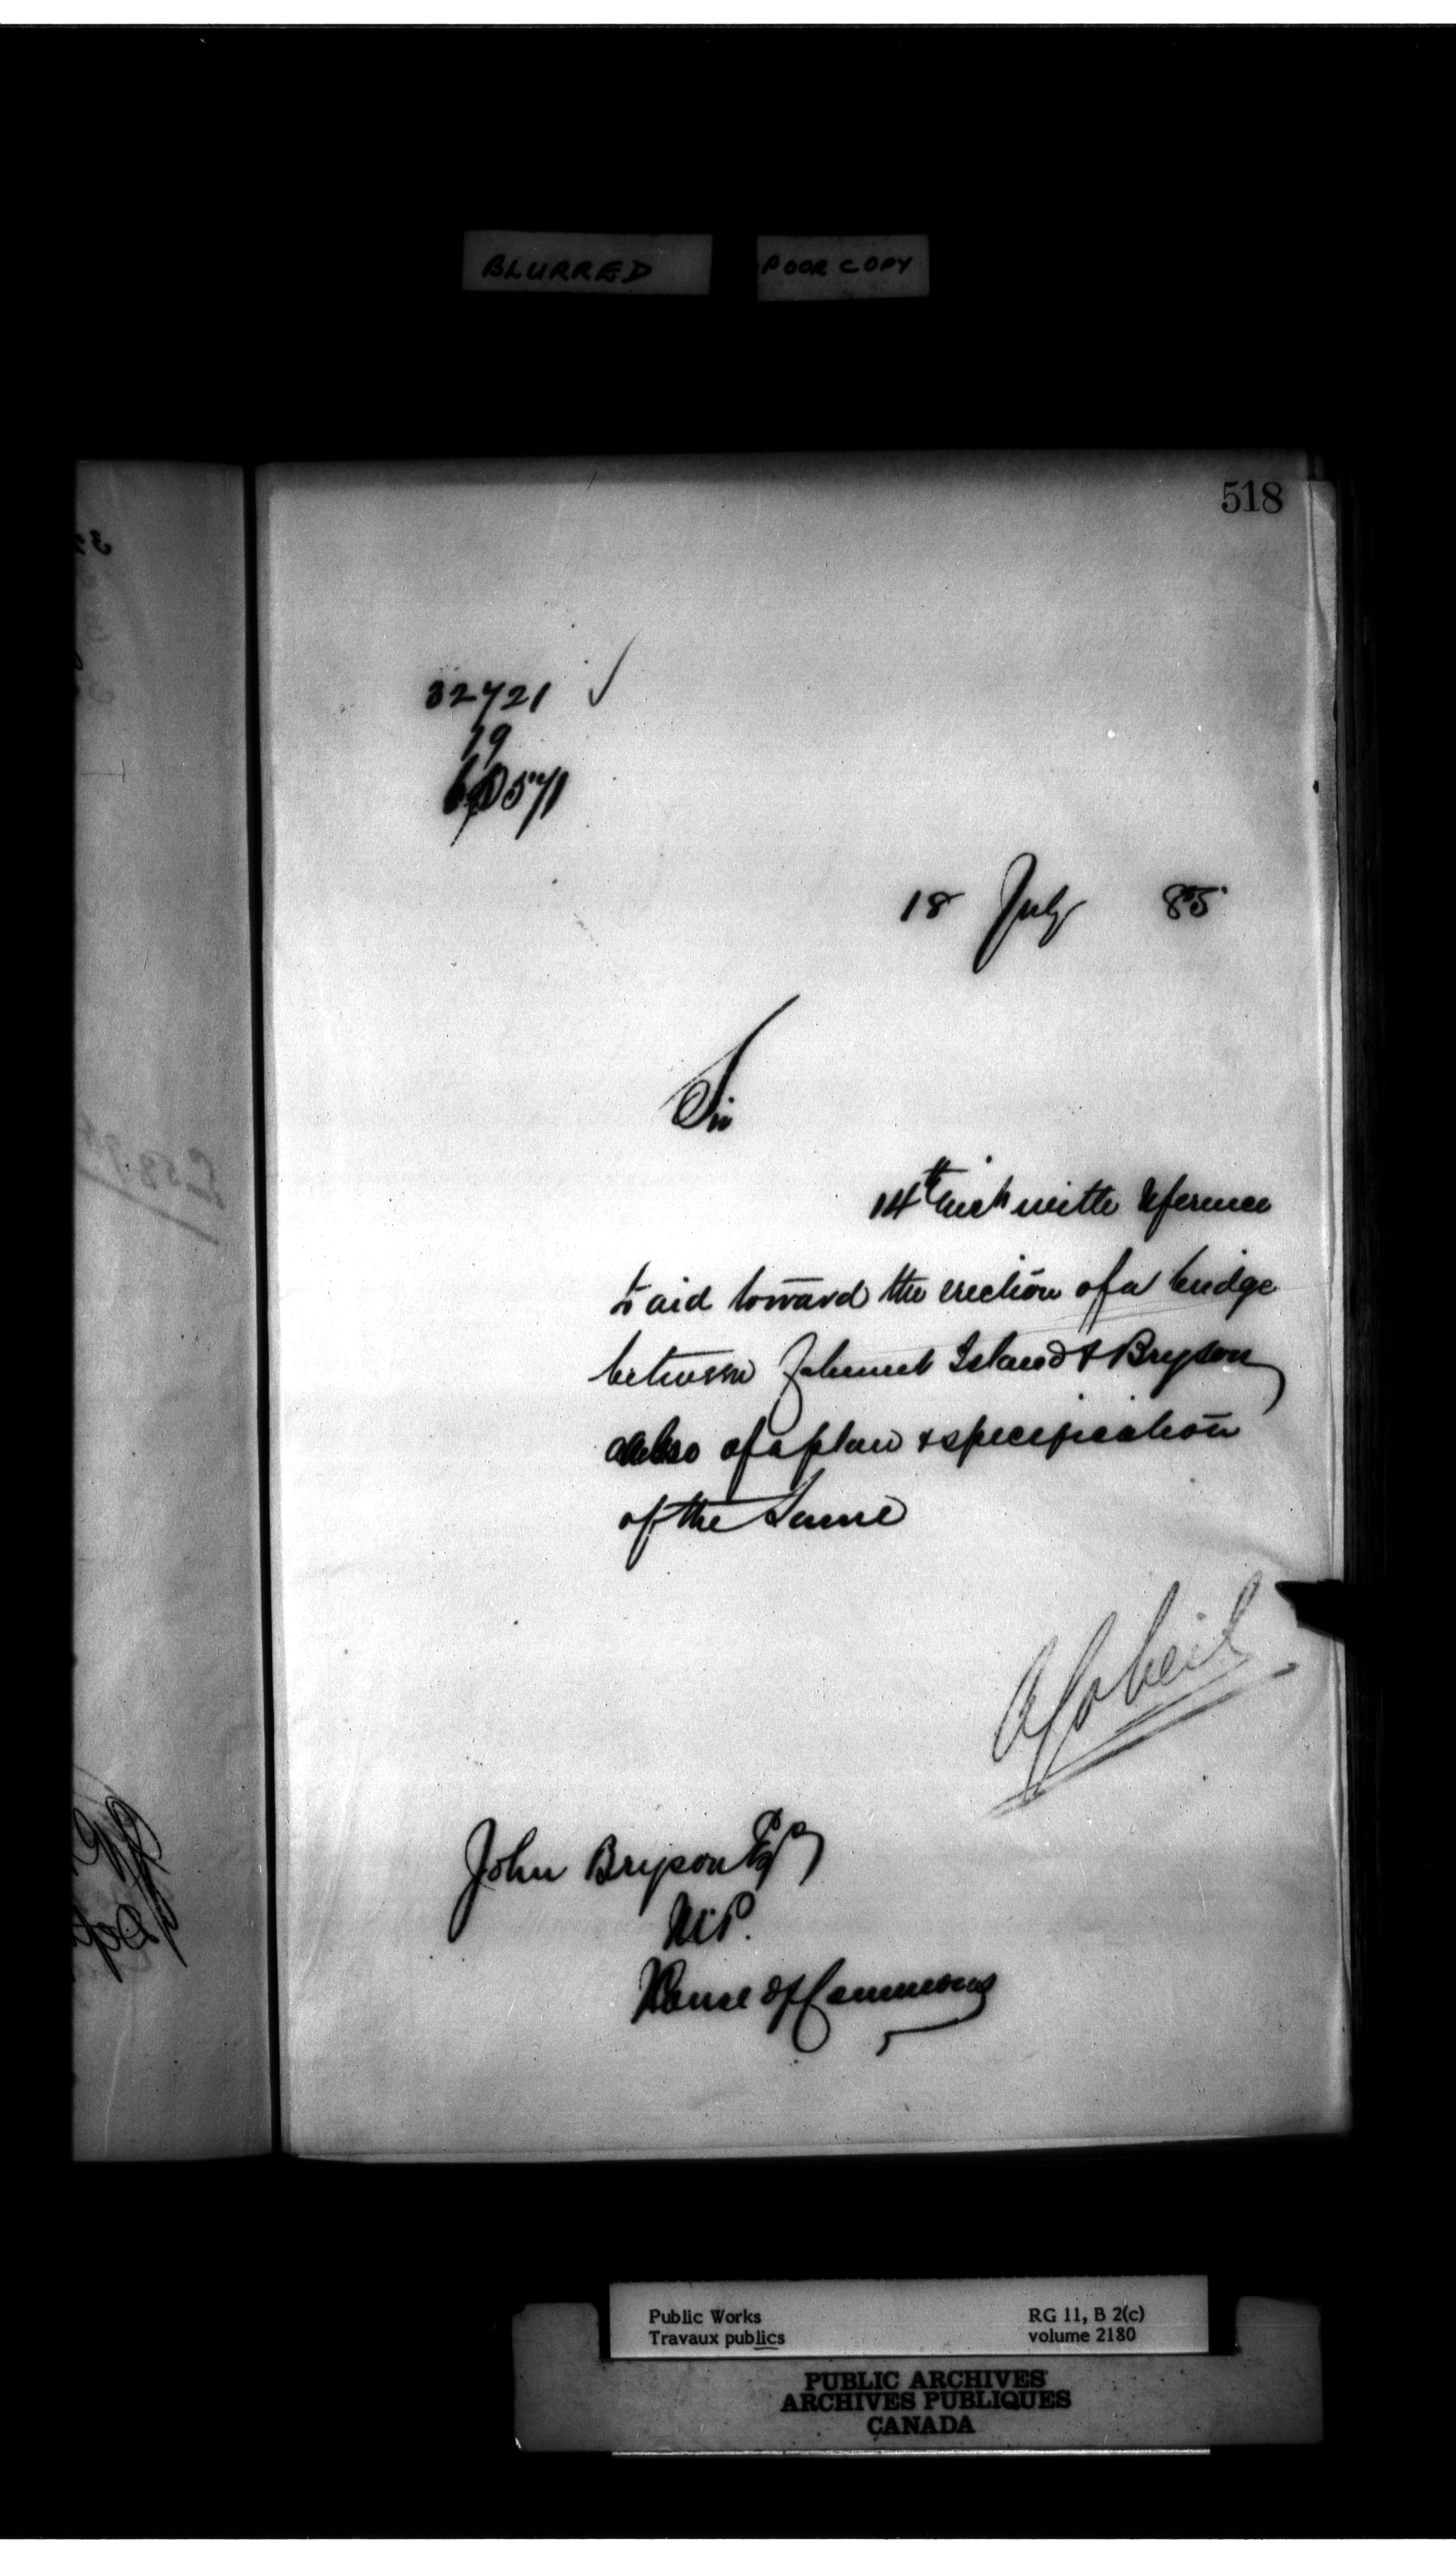 BLURRED POOR COPY
518
32721
19
60571
18 July 85
Sir
14th inst with reference
to aid toward the erection of a bridge
between Calumet Island & Bryson
also of a plan & specification
of the same
A Gobeil
John Bryson Esq
M.P.
House of Commons
Public Works RG 11, B 2(c)
Travaux publics volume 2180
PUBLIC ARCHIVES
ARCHIVES PUBLIQUES
CANADA